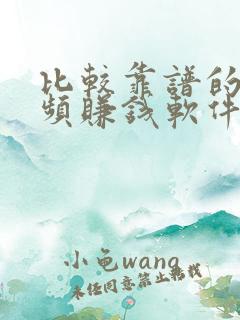 比較靠譜的
頻賺錢軟件
小色wang
未经同意禁止转载